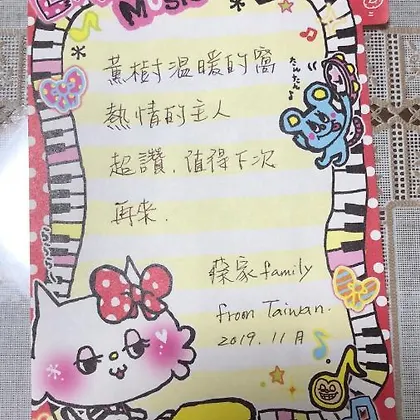 MUSIC
薰樹溫暖的窩
たんたん♪
熱情的主人
超讚，值得下次
再來.
蔡家family
from Taiwan.
2019.11月